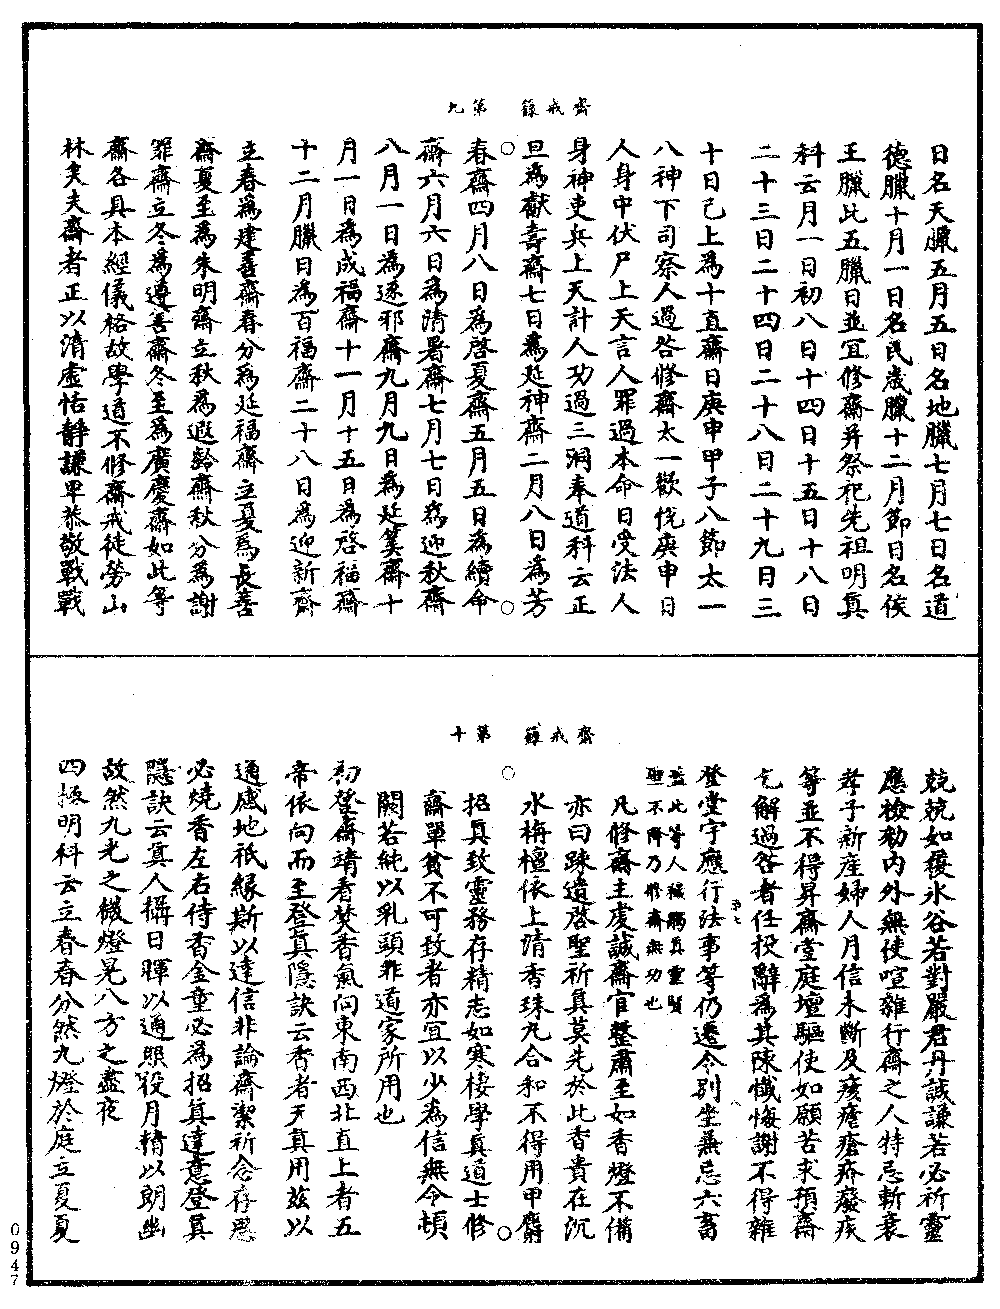 齋戒籙　第九
日名天臘五月五日名地臘七月七日名道
德臘十月一日名民歲臘十二月節日名侯
王臘此五臘日並宜修齋并祭祀先祖明真
科云月一日初八日十四日十五日十八日
二十三日二十四日二十八日二十九日三
十日已上為十直齋日庚申甲子八節太一
八神下司察人過咎修齋太一歡悅庚申日
人身中伏尸上天言人罪過本命日受法人
身神吏兵上天計人功過三洞奉道科云正
旦為獻壽齋七日為延神齋二月八日為芳
春齋四月八日為啓夏齋五月五日為續命
齋六月六日為清暑齋七月七日為迎秋齋
八月一日為逐邪齋九月九日為延筭齋十
月一日為成福齋十一月十五日為啓福齋
十二月臘日為百福齋二十八日為迎新齋
立春為建善齋春分為延福齋立夏為長善
齋夏至為朱明齋立秋為遐齡齋秋分為謝
罪齋立冬為遵善齋冬至為廣慶齋如此等
齋各具本經儀格故學道不修齋戒徒勞山
林矣夫齋者正以清虛恬靜謙卑恭敬戰戰
齋戒籙　第十
兢兢如履冰谷若對嚴君丹誠謙若必祈靈
應檢勑內外無使喧雜行齋之人特忌斬衰
孝子新産婦人月信未斷及痎瘧瘡疥癈疾
等並不得昇齋堂庭壇驅使如願苦求預齋
乞解過咎者任投辭為其陳懺悔謝不得雜
登堂宇應行法事等仍遷令別坐兼忌六畜
蓋此等人穢觸真靈賢
聖不降乃修齋無功也
凡修齋主虔誠齋官整肅至如香燈不備
亦曰踈遺啓聖祈真莫先於此香貴在沉
水栴檀依上清香珠九合和不得用甲麝
招真致靈務存精志如寒棲學真道士修
齋單貧不可致者亦宜以少為信無令頓
闕若純以乳頭非道家所用也
初登齋靖者焚香氣向東南西北直上者五
帝依向而至登真隱訣云香者天真用茲以
通感地祇緣斯以達信非論齋潔祈念存思
必燒香左右侍香金童必為招真達意登真
隱訣云真人攝日暉以通照役月精以朗幽
故然九光之微燈晃八方之盡夜
四極明科云立春春分然九燈於庭立夏夏
0947